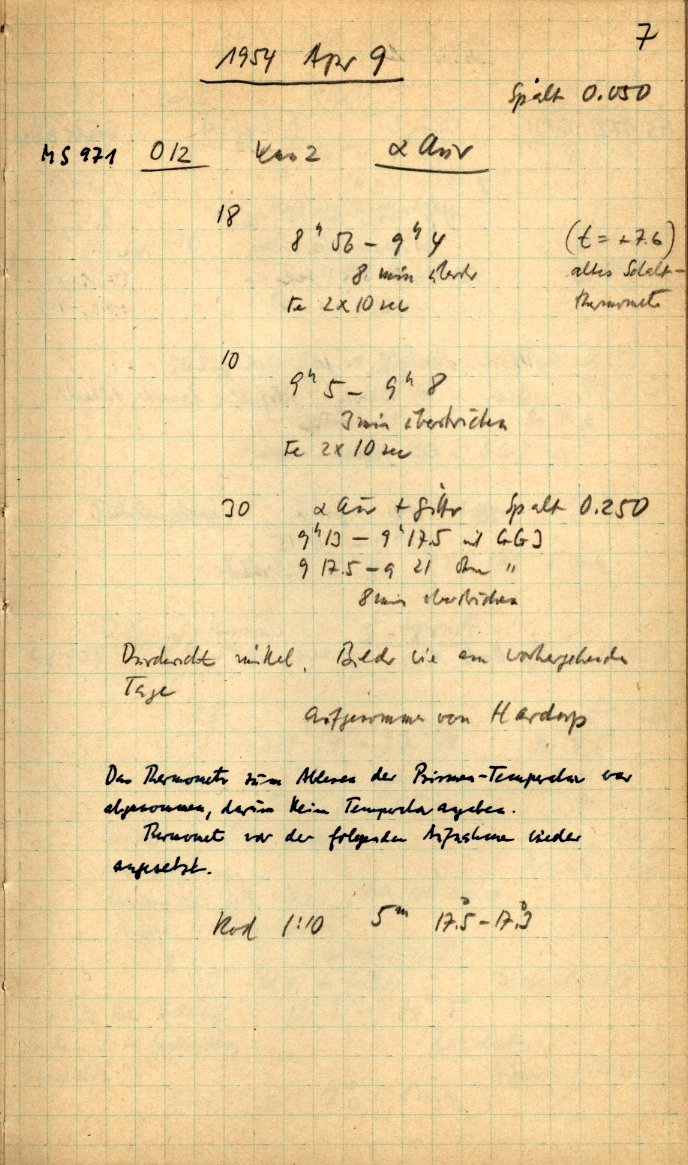 7
1954 Apr 9
Spalt 0.050
MS 971 O12 α Aur
18
8ʰ 56 – 9ʰ 4 (t = +7.6)
8 min altes Schalt-
Fe 2 x 10 sec thermometer
10
9ʰ 5 – 9ʰ 8
3 min überstrichen
Fe 2 x 10 sec
30 α Aur + Gitter Spalt 0.250
9ʰ13 – 9ʰ17.5 mit GG3
9 17.5 – 9 21 ohne "
8 min überstrichen
Durchsicht mittel. Bilder wie am vorhergehenden
Tage
Aufgenommen von Hardorp
Das Thermometer zum Ablesen der Prismen-Temperatur war
abgenommen, darum keine Temperaturangaben.
Thermometer vor der folgenden Aufnahme wieder
angesetzt.
Rod 1:10 5ᵐ 17.°5 – 17.°3